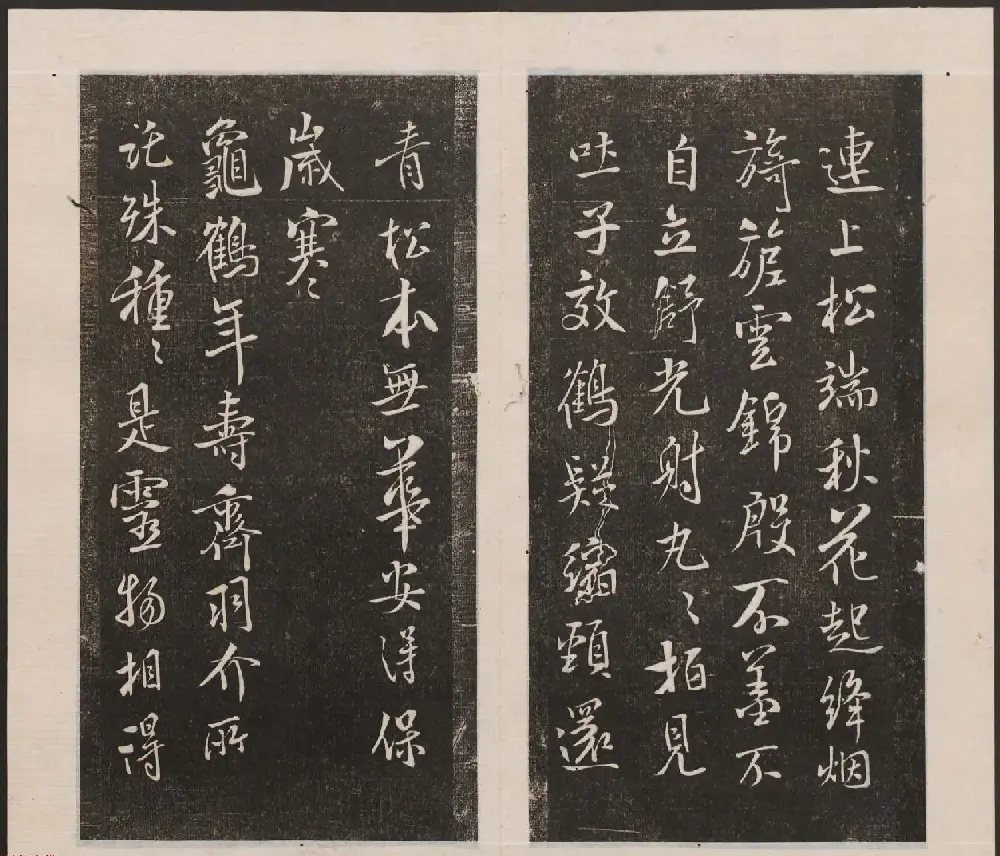 連上松端秋花起絳烟
旖旎雲錦殷不羞不
自立舒光射丸〻柏見
吐子效鶴疑縮頸還
青松本無華安得保
歲寒
龜鶴年壽齊羽介所
託殊種〻是靈物相得